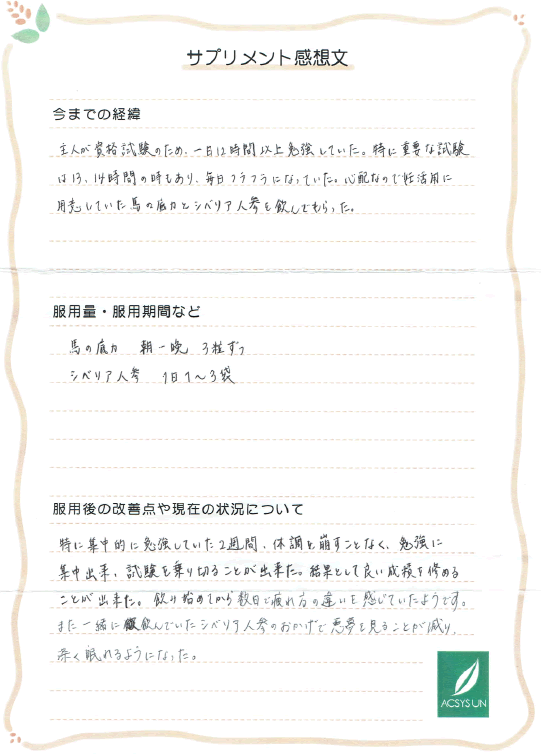 サプリメント感想文
今までの経緯
主人が資格試験のため、一日12時間以上勉強していた。特に重要な試験
は13、14時間の時もあり、毎日フラフラになっていた。心配なので妊活用に
用意していた馬の底力とシベリア人参を飲んでもらった。
服用量・服用期間など
馬の底力 朝一晩 3粒ずつ
シベリア人参 1日1〜3袋
服用後の改善点や現在の状況について
特に集中的に勉強していた2週間、体調を崩すことなく、勉強に
集中出来、試験を乗り切ることが出来た。結果として良い成績を修める
ことが出来た。飲み始めてから数日で疲れ方の違いを感じていたようです。
また一緒に飲んでいたシベリア人参のおかげで悪夢を見ることが減り、
深く眠れるようになった。
ACSYSUN